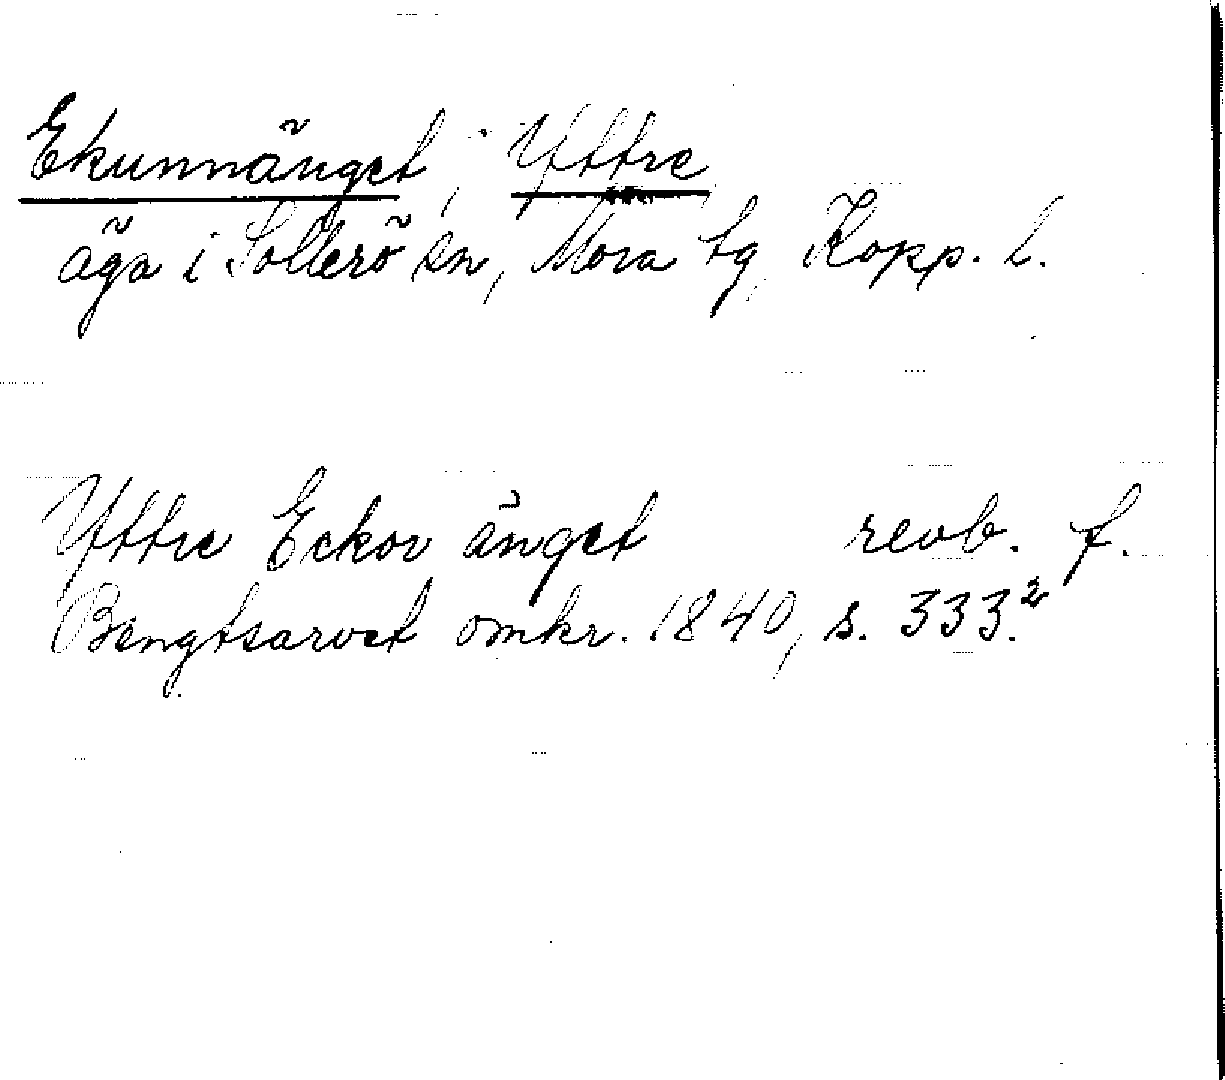 Ekunnänget, Yttre
äga i Sollerö sn, Mora tg, Kopp. l.
Yttre Eckor änget revb. f.
Bengtsarvet omkr. 1840, s. 333.²